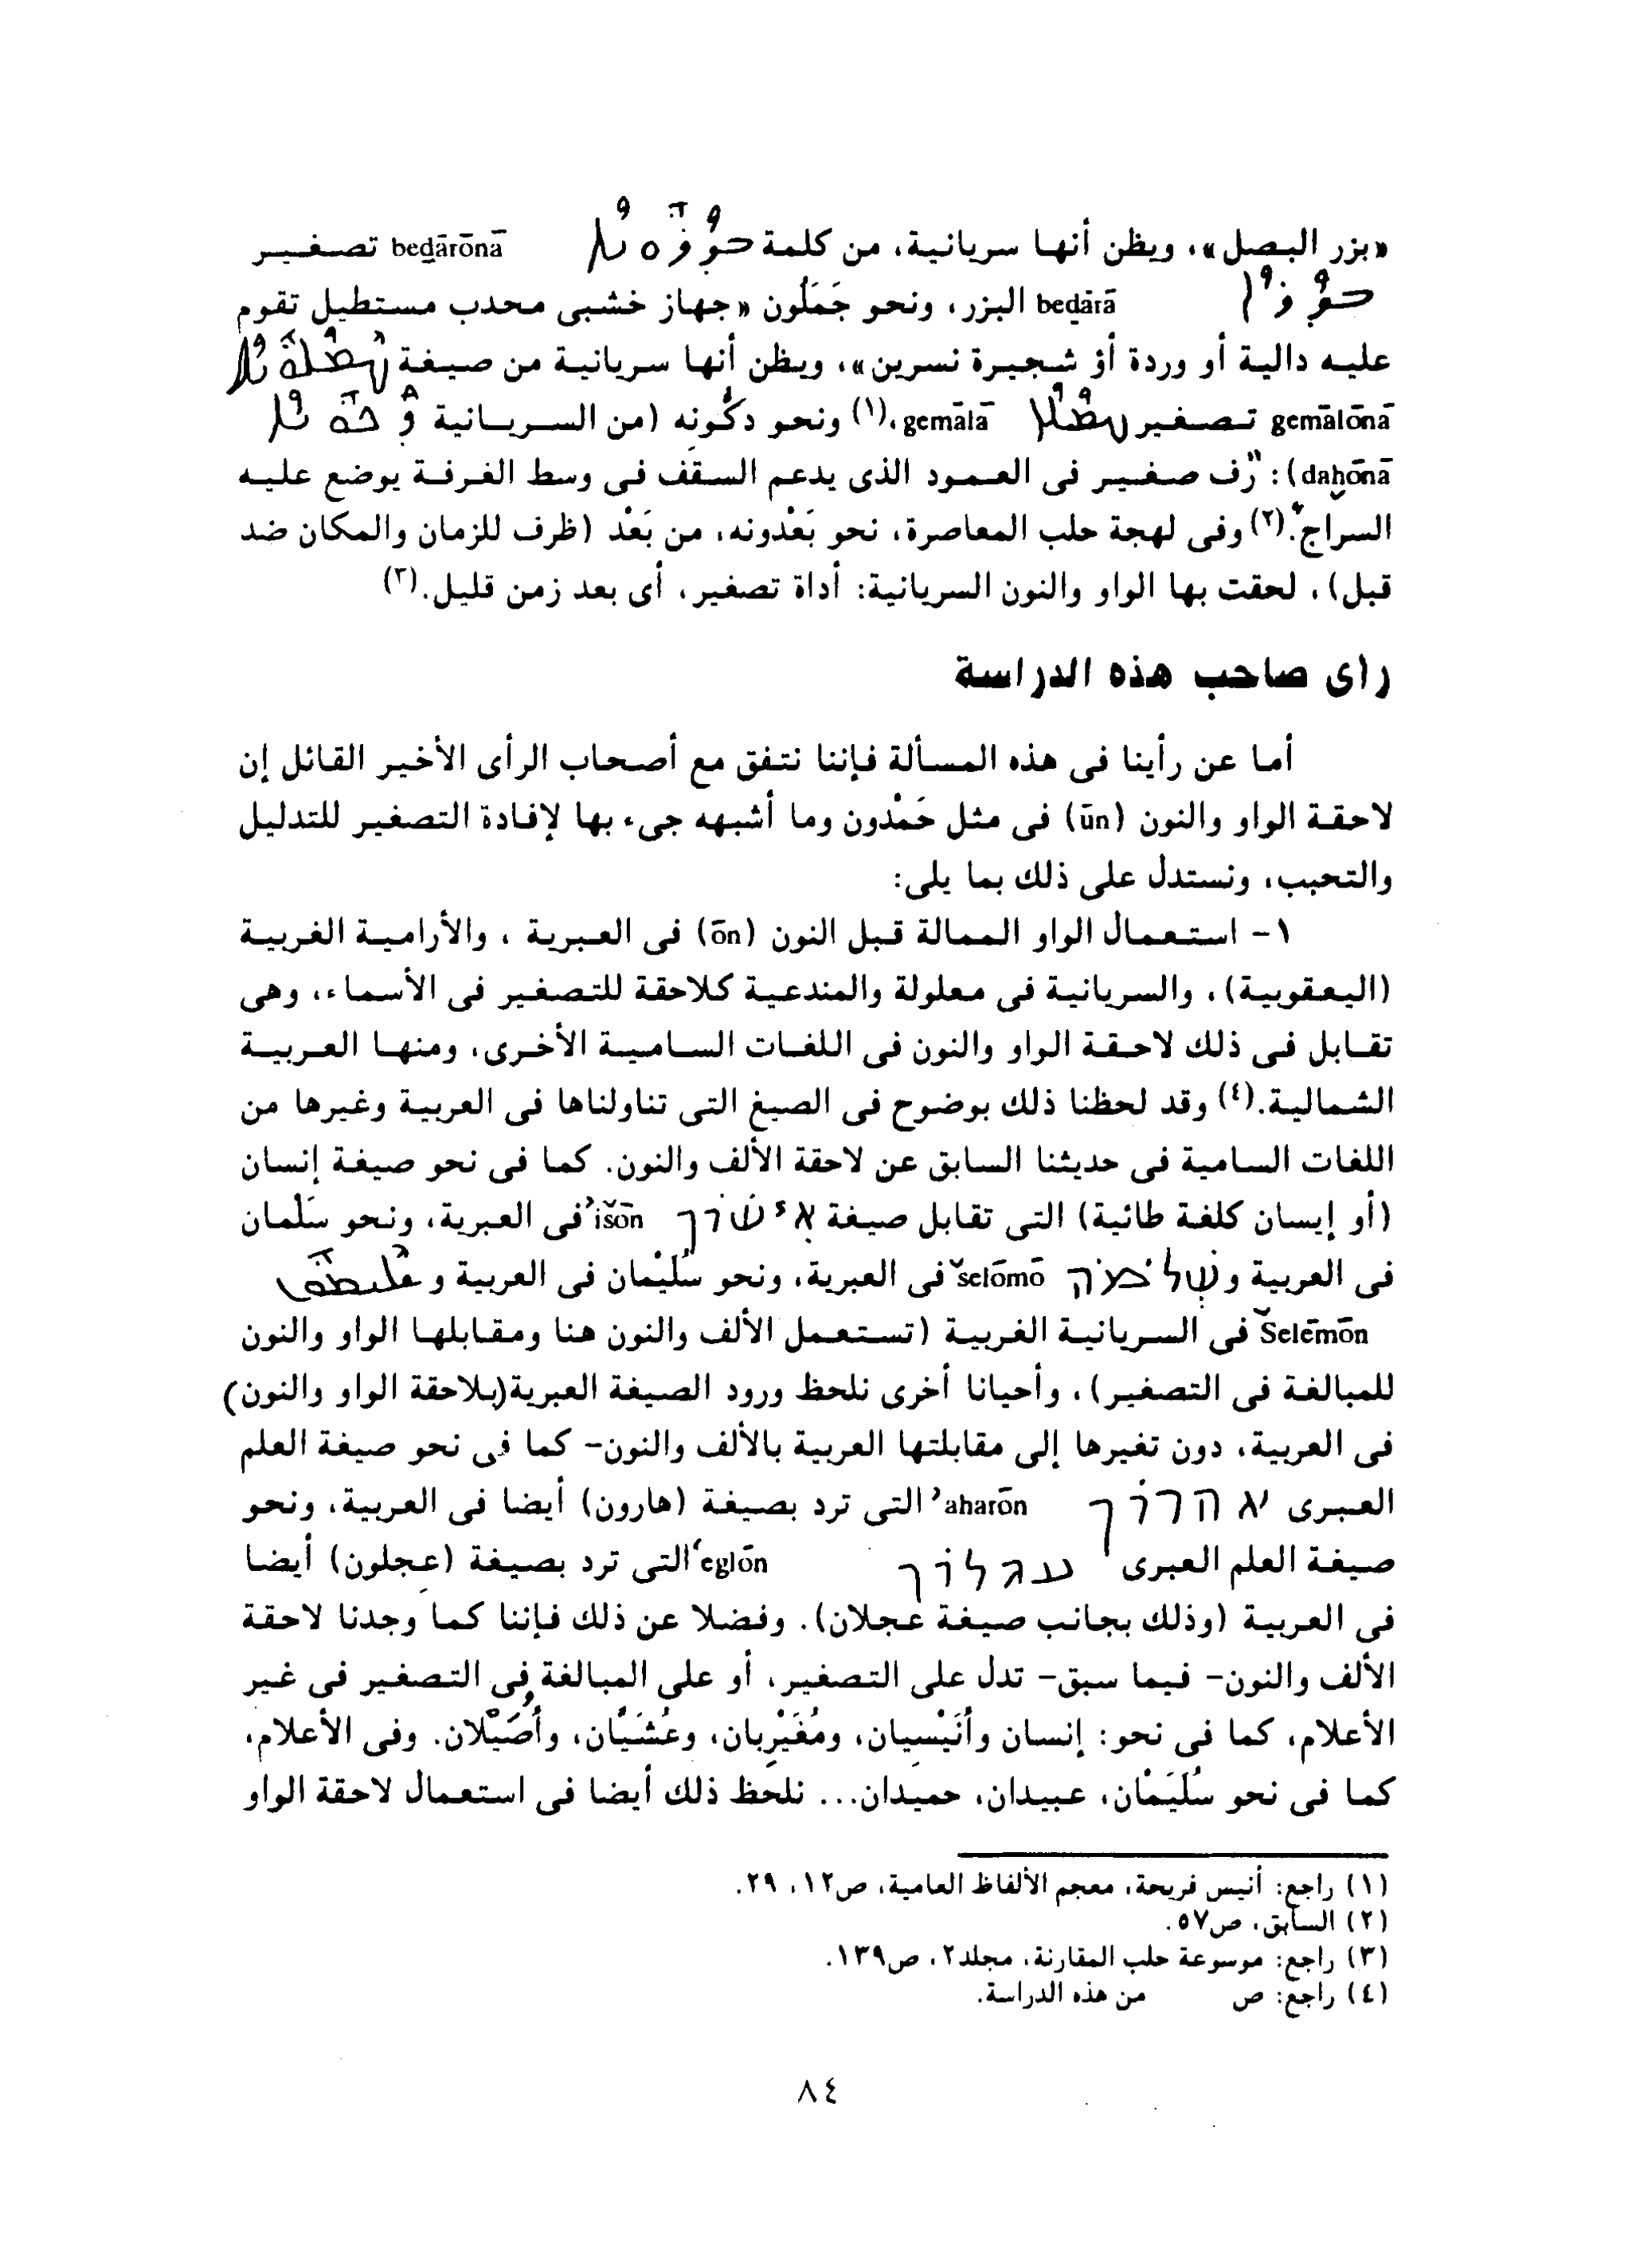 «بزر البصل»، ويظن أنها سريانية، من كلمة bedārōnā تصغير
bedārā البزر، ونحو جَمَلُون «جهاز خشبى محدب مستطيل تقوم
عليه دالية أو وردة أؤ شجيرة نسرين»، ويظن أنها سريانية من صيغة
gemālōnā تصغير gemālā،(١) ونحو دكُونه (من السريانية
daḥōnā): "رَف صغير فى العمود الذى يدعم السقف فى وسط الغرفة يوضع عليه
السراج".(٢) وفى لهجة حلب المعاصرة، نحو بَعْدونه، من بَعْد (ظرف للزمان والمكان ضد
قبل)، لحقت بها الواو والنون السريانية: أداة تصغير، أى بعد زمن قليل.(٣)
رأى صاحب هذه الدراسة
أما عن رأينا فى هذه المسألة فإننا نتفق مع أصحاب الرأى الأخير القائل إن
لاحقة الواو والنون (ūn) فى مثل حَمْدون وما أشبهه جىء بها لإفادة التصغير للتدليل
والتحبب، ونستدل على ذلك بما يلى:
١- استعمال الواو الممالة قبل النون (ōn) فى العبرية ، والأرامية الغربية
(اليعقوبية)، والسريانية فى معلولة والمندعية كلاحقة للتصغير فى الأسماء، وهى
تقابل فى ذلك لاحقة الواو والنون فى اللغات السامية الأخرى، ومنها العربية
الشمالية.(٤) وقد لحظنا ذلك بوضوح فى الصيغ التى تناولناها فى العربية وغيرها من
اللغات السامية فى حديثنا السابق عن لاحقة الألف والنون. كما فى نحو صيغة إنسان
(أو إيسان كلغة طائية) التى تقابل صيغة אִישׁוֹן ʾišōn فى العبرية، ونحو سَلْمان
فى العربية و שְׁלֹמֹה šelōmō فى العبرية، ونحو سُلَيْمان فى العربية و
Šelēmōn فى السريانية الغربية (تستعمل الألف والنون هنا ومقابلها الواو والنون
للمبالغة فى التصغير)، وأحيانا أخرى نلحظ ورود الصيغة العبرية(بلاحقة الواو والنون)
فى العربية، دون تغيرها إلى مقابلتها العربية بالألف والنون- كما فى نحو صيغة العلم
العبرى אהרוֹן ʾaharōn التى ترد بصيغة (هارون) أيضا فى العربية، ونحو
صيغة العلم العبرى עגלון ʿeglōn التى ترد بصيغة (عجلون) أيضا
فى العربية (وذلك بجانب صيغة عجلان). وفضلا عن ذلك فإننا كما وجدنا لاحقة
الألف والنون- فيما سبق- تدل على التصغير، أو على المبالغة فى التصغير فى غير
الأعلام، كما فى نحو: إنسان وأُنَيْسِيان، ومُغَيْرِبان، وعُشَيَّان، وأُصَيْلان. وفى الأعلام،
كما فى نحو سُلَيَمْان، عبيدان، حميدان... نلحظ ذلك أيضا فى استعمال لاحقة الواو
(١) راجع: أنيس فريحة، معجم الألفاظ العامية، ص١٢، ٢٩.
(٢) السابق، ص٥٧.
(٣) راجع: موسوعة حلب المقارنة، مجلد٢، ص١٣٩.
(٤) راجع: ص من هذه الدراسة.
٨٤